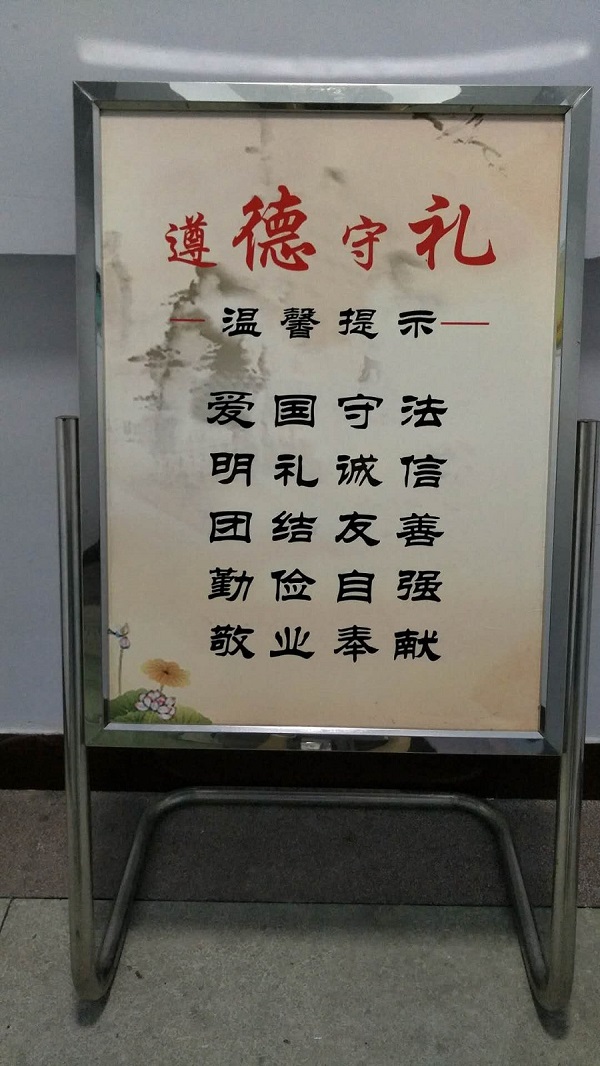 遵德守礼
温馨提示
爱国守法
明礼诚信
团结友善
勤俭自强
敬业奉献